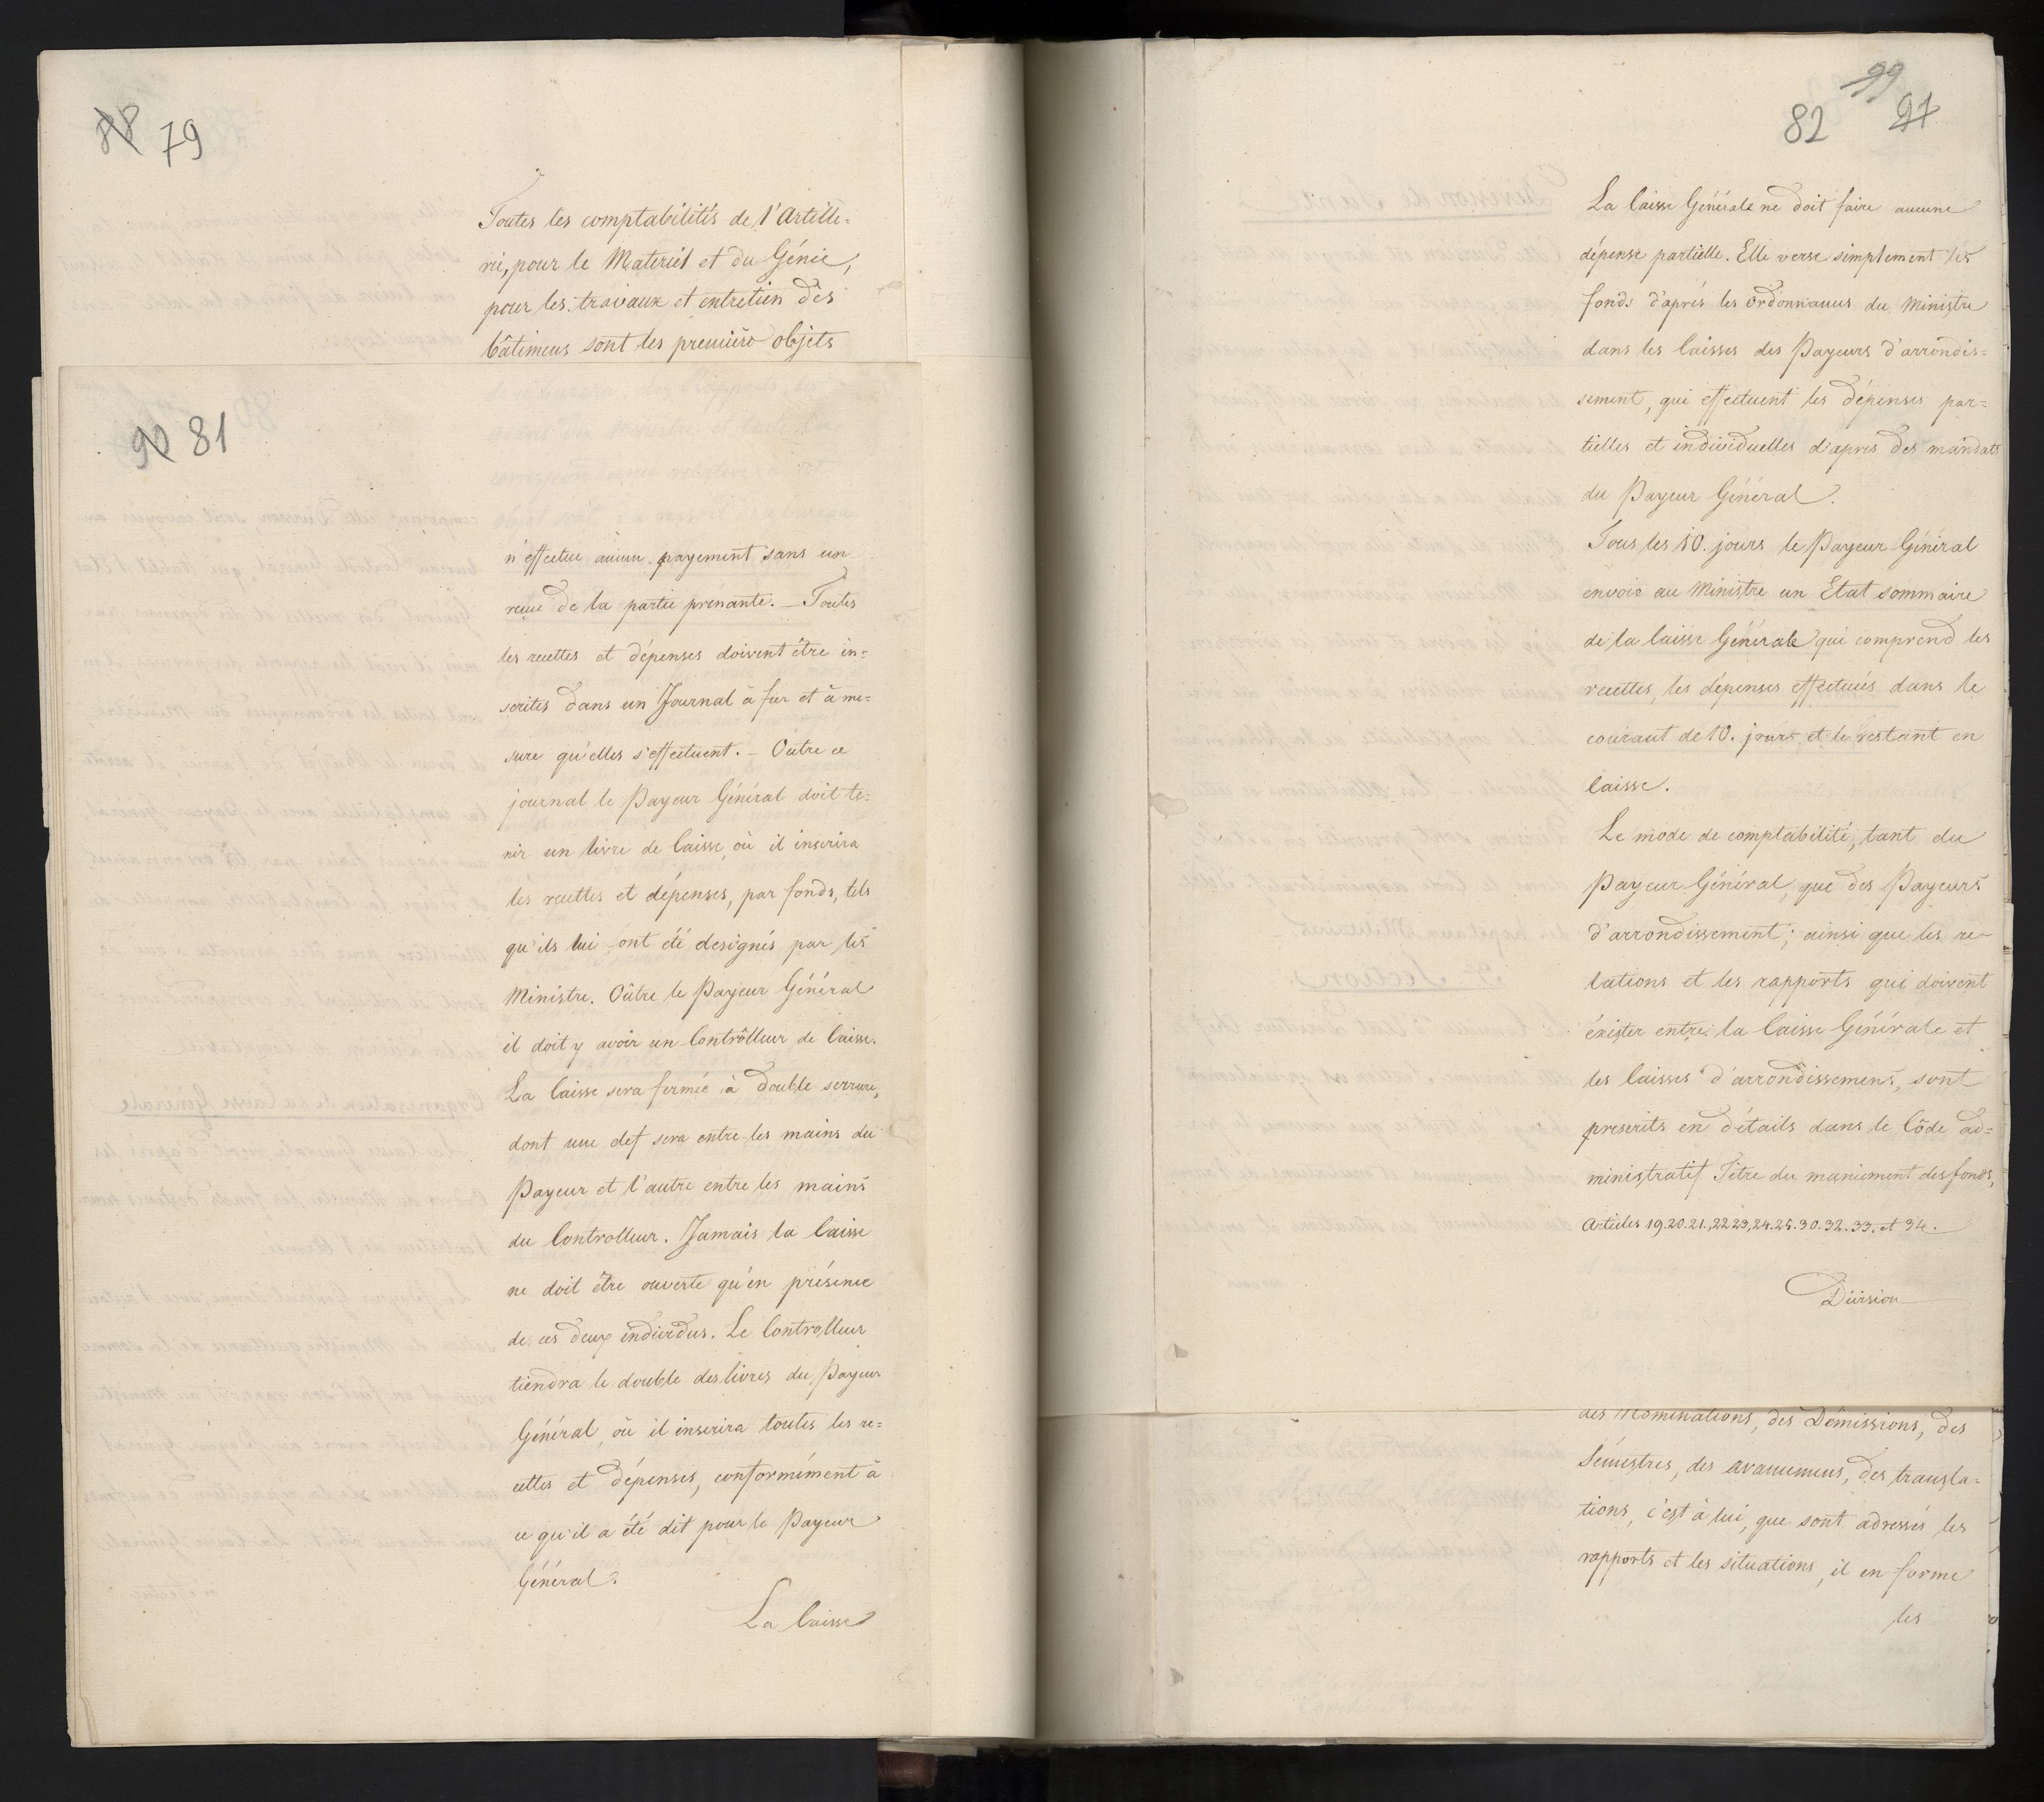 88 79
Toutes les comptabilités de l'Artille=
rie, pour le Materiel et du Génie,
pour les travaux et entretien des
bâtimens sont les premiers objets
90 81
n'effectue aucun payement sans un
reçu de la partie prenante. — Toutes
les recettes et dépenses doivent être in=
scrites dans un Journal à fur et à me=
sure qu'elles s'effectuent. — Outre ce
journal le Payeur Général doit te=
nir un livre de Caisse, où il inscrira
les recettes et dépenses, par fonds, tels
qu'ils lui ont été designés par les
Ministre. Oûtre le Payeur Général
il doit y avoir un Contrôlleur de Caisse.
La Caisse sera fermée à double serrure,
dont une clef sera entre les mains du
Payeur et l'autre entre les mains
du Controlleur. Jamais la Caisse
ne doit être ouverte qu'en présence
de ces deux individus. Le Controlleur
tiendra le double des livres du Payeur
Général, où il inscrira toutes les re=
cettes et dépenses, conformément à
ce qu'il a été dit pour le Payeur
Général.
La Caisse
99
82 97
La Caisse Générale ne doit faire aucune
dépense partielle. Elle verse simplement les
fonds d'après les Ordonnances du Ministre
dans les Caisses des Payeurs d'arrondis=
sement, qui effectuent les dépenses par=
tielles et individuelles d'apres des mandats
du Payeur Général.
Tous les 10. jours le Payeur Général
envoie au Ministre un Etat sommaire
de la Caisse Générale qui comprend les
recettes, les dépenses effectués dans le
courant de 10. jours et le restant en
Caisse.
Le mode de comptabilité, tant du
Payeur Général, que des Payeurs
d'arrondissement; ainsi que les re-
lations et les rapports qui doivent
éxister entre la Caisse Générale et
les Caisses d'arrondissemens, sont
prescrits en détails dans le Côde ad=
ministratif Titre du maniement des fonds,
Articles 19.20.21.,22 23,24.25.30.32.33. et 34.
Division
des Nominations, des Démissions, des
Sémestres, des avancemens, des transla=
tions, c'est à lui, que sont adressés les
rapports et les situations, il en forme
les